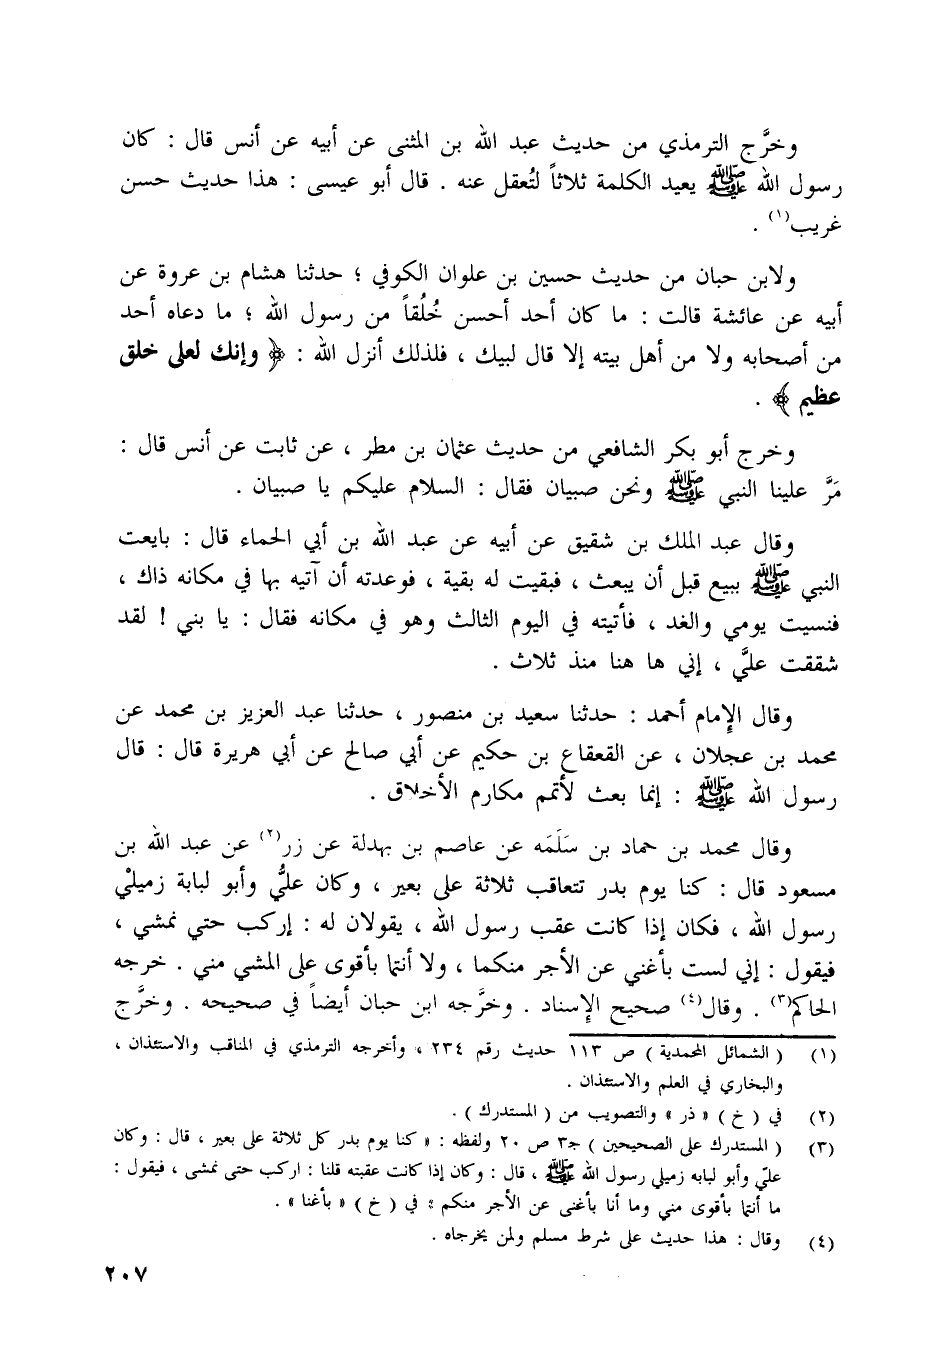 وخرَّج الترمذي من حديث عبد الله بن المثنى عن أبيه عن أنس قال : كان
رسول الله ﷺ يعيد الكلمة ثلاثاً لتُعقل عنه . قال أبو عيسى : هذا حديث حسن
غريب(١) .
ولابن حبان من حديث حسين بن علوان الكوفي ؛ حدثنا هشام بن عروة عن
أبيه عن عائشة قالت : ما كان أحد أحسن خُلُقاً من رسول الله ؛ ما دعاه أحد
من أصحابه ولا من أهل بيته إلا قال لبيك ، فلذلك أنزل الله : ﴿ وإنك لعلى خلق
عظيم ﴾ .
وخرج أبو بكر الشافعي من حديث عثمان بن مطر ، عن ثابت عن أنس قال :
مَرَّ علينا النبي ﷺ ونحن صبيان فقال : السلام عليكم يا صبيان .
وقال عبد الملك بن شقيق عن أبيه عن عبد الله بن أبي الحماء قال : بايعت
النبي ﷺ ببيع قبل أن يبعث ، فبقيت له بقية ، فوعدته أن آتيه بها في مكانه ذاك ،
فنسيت يومي والغد ، فأتيته في اليوم الثالث وهو في مكانه فقال : يا بني ! لقد
شققت عليَّ ، إني ها هنا منذ ثلاث .
وقال الإمام أحمد : حدثنا سعيد بن منصور ، حدثنا عبد العزيز بن محمد عن
محمد بن عجلان ، عن القعقاع بن حكيم عن أبي صالح عن أبي هريرة قال : قال
رسول الله ﷺ : إنما بعث لأتمم مكارم الأخلاق .
وقال محمد بن حماد بن سَلَمَه عن عاصم بن بهدلة عن زر(٢) عن عبد الله بن
مسعود قال : كنا يوم بدر نتعاقب ثلاثة على بعير ، وكان عليُّ وأبو لبابة زميليْ
رسول الله ، فكان إذا كانت عقب رسول الله ، يقولان له : إركب حتي نمشي ،
فيقول : إني لست بأغني عن الأجر منكما ، ولا أنتما بأقوى على المشي مني . خرجه
الحاكم(٣) . وقال(٤) صحيح الإسناد . وخرَّجه ابن حبان أيضاً في صحيحه . وخرَّج
(١) ( الشمائل المحمدية ) ص ١١٣ حديث رقم ٢٣٤ ، وأخرجه الترمذي في المناقب والاستئذان ،
والبخاري في العلم والاستئذان .
(٢) في ( خ ) « ذر » والتصويب من ( المستدرك ) .
(٣) ( المستدرك على الصحيحين ) جـ٣ ص ٢٠ ولفظه : « كنا يوم بدر كل ثلاثة على بعير ، قال : وكان
عليّ وأبو لبابه زميلي رسول الله ﷺ ، قال : وكان إذا كانت عقبته قلنا : اركب حتى نمشى ، فيقول :
ما أنتما بأقوى مني وما أنا بأغنى عن الأجر منكم » في ( خ ) « بأغنا » .
(٤) وقال : هذا حديث على شرط مسلم ولمن يخرجاه .
٢٠٧